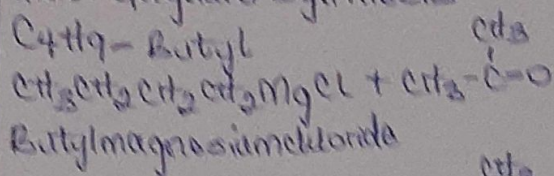 C4H9 - Butyl
CH3
CH3CH2CH2CH2MgCl + CH3-C=O
Butylmagnesiumchloride